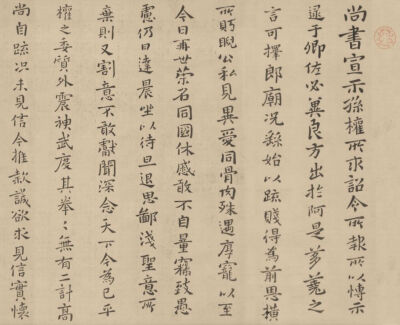 尚書宣示孫權所求詔令所報所以博示
逮于卿佐必冀良方出於阿是芻蕘之
言可擇郎廟況繇始以疏賤得為前恩橫
所眄睨公私見異愛同骨肉殊遇厚寵以至
今日再世榮名同國休慼敢不自量竊致愚
慮仍日達晨坐以待旦退思鄙淺聖意所
棄則又割意不敢獻聞深念天下今為已平
權之委質外震神武度其拳〻無有二計高
尚自疏況未見信今推款誠欲求見信實懷